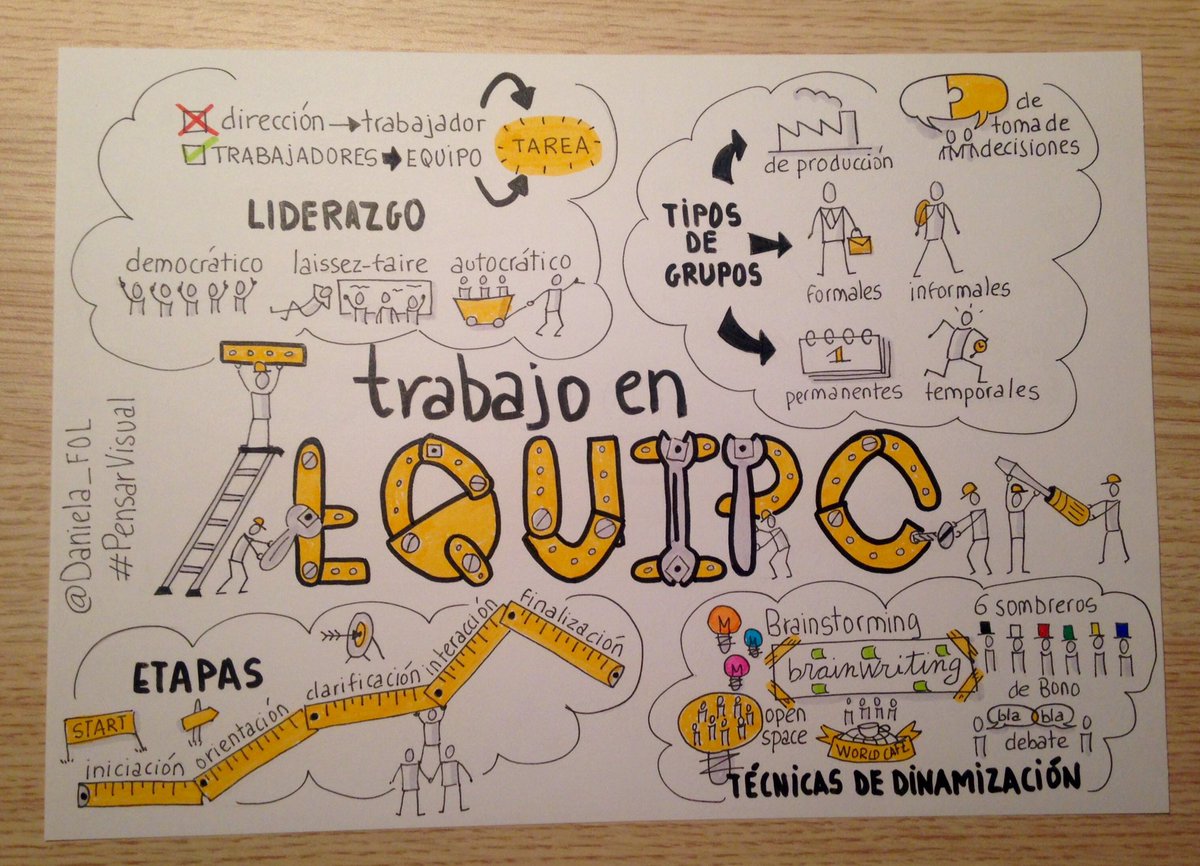 dirección → trabajador
TRABAJADORES → EQUIPO
TAREA
LIDERAZGO
democrático
laissez-faire
autocrático
TIPOS
DE
GRUPOS
de producción
de
toma de
decisiones
formales
informales
1
permanentes
temporales
trabajo en
EQUIPO
@Daniela_FOL
#PensarVisual
ETAPAS
START
iniciación
orientación
clarificación
interacción
finalización
M
M
M
Brainstorming
brainwriting
6 sombreros
de Bono
open
space
WORLD CAFÉ
bla bla
debate
TÉCNICAS DE DINAMIZACIÓN